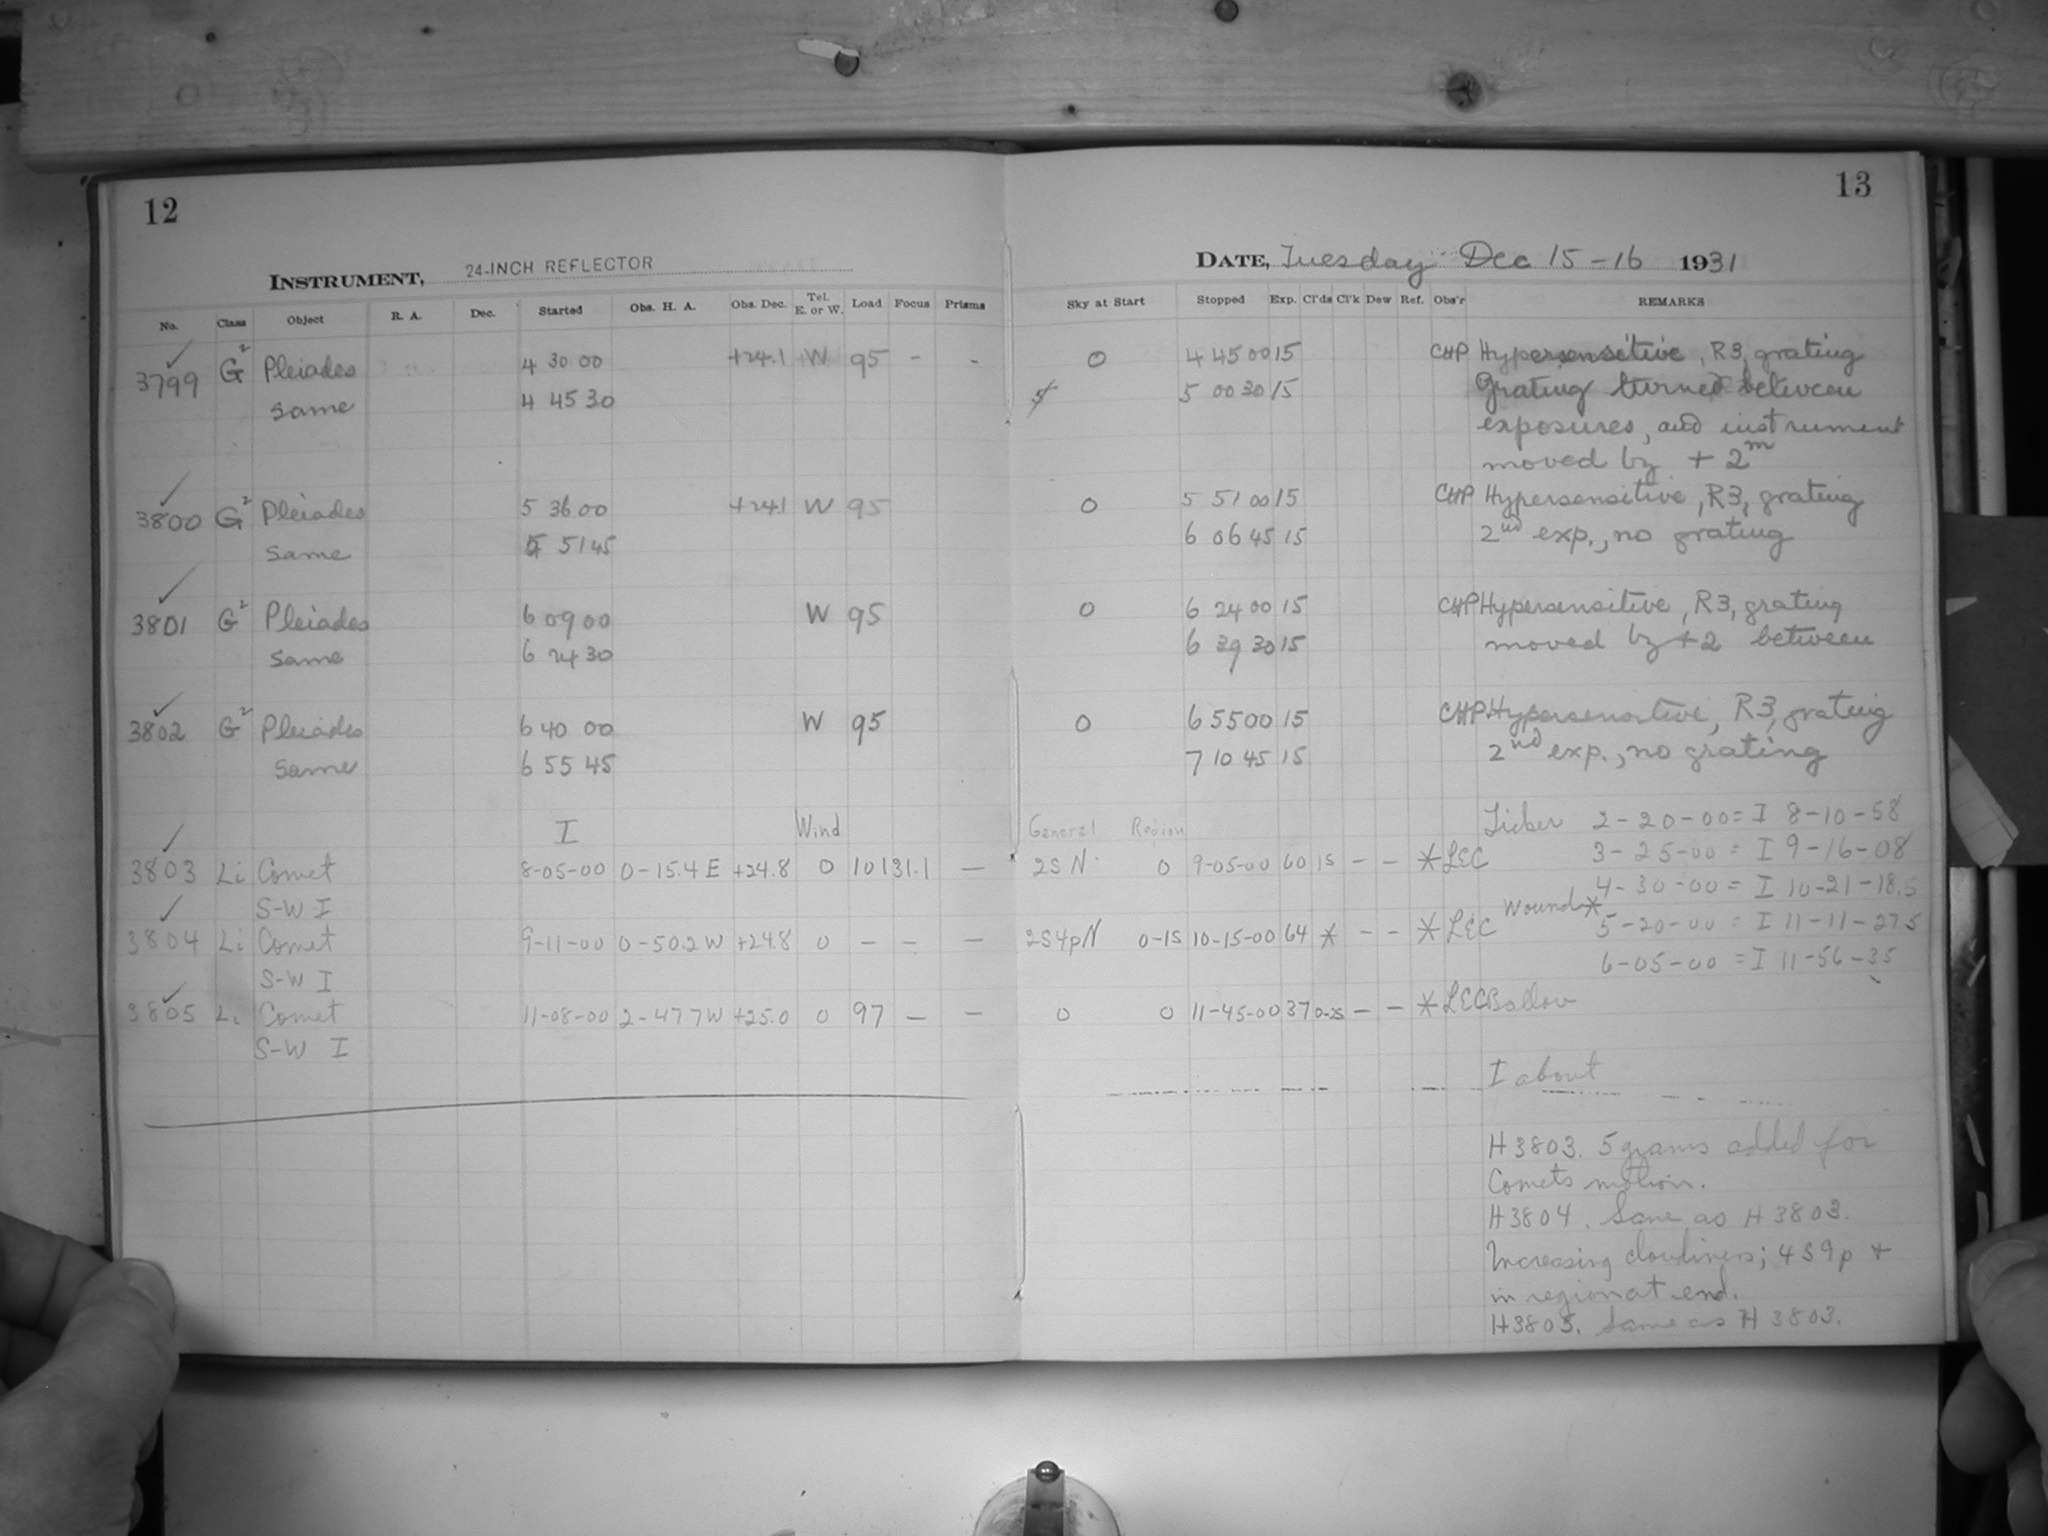 12
INSTRUMENT, 24-INCH REFLECTOR
No. Class Object R. A. Dec. Started Obs. H. A. Obs. Dec. Tel. E. or W. Load Focus Prisms
3799 G² Pleiades 4 30 00 +24.1 W 95 - -
same 4 45 30
3800 G² Pleiades 5 36 00 +24.1 W 95
same 5 51 45
3801 G² Pleiades 6 09 00 W 95
same 6 24 30
3802 G² Pleiades 6 40 00 W 95
same 6 55 45
I Wind
3803 Li Comet 8-05-00 0-15.4 E +24.8 0 101 31.1 —
S-W I
3804 Li Comet 9-11-00 0-50.2 W +24.8 0 — — —
S-W I
3805 Li Comet 11-08-00 2-47.7 W +25.0 0 97 — —
S-W I
13
DATE, Tuesday Dec 15-16 1931
Sky at Start Stopped Exp. Cl'ds Cl'k Dew Ref. Obs'r REMARKS
0 4 45 00 15 CHP Hypersensitive, R3, grating
5 00 30 15 Grating turned between
exposures, and instrument
moved by + 2ᵐ
0 5 51 00 15 CHP Hypersensitive, R3, grating
6 06 45 15 2nd exp., no grating
0 6 24 00 15 CHP Hypersensitive, R3, grating
6 39 30 15 moved by +2 between
0 6 55 00 15 CHP Hypersensitive, R3, grating
7 10 45 15 2nd exp., no grating
General Region Lieber 2-20-00 = I 8-10-58
3-25-00 = I 9-16-08
2S N 0 9-05-00 60 1S — — * LEC
4-30-00 = I 10-21-18.5
Wound*
5-20-00 = I 11-11-27.5
2S4pN 0-1S 10-15-00 64 * — — * LEC
6-05-00 = I 11-56-35
0 0 11-45-00 37 — — * LEC
I about
H3803. 5 grams added for
Comets motion.
H3804. Same as H3803.
Increasing cloudiness; 4S9p +
in region at end.
H3805. Same as H3803.